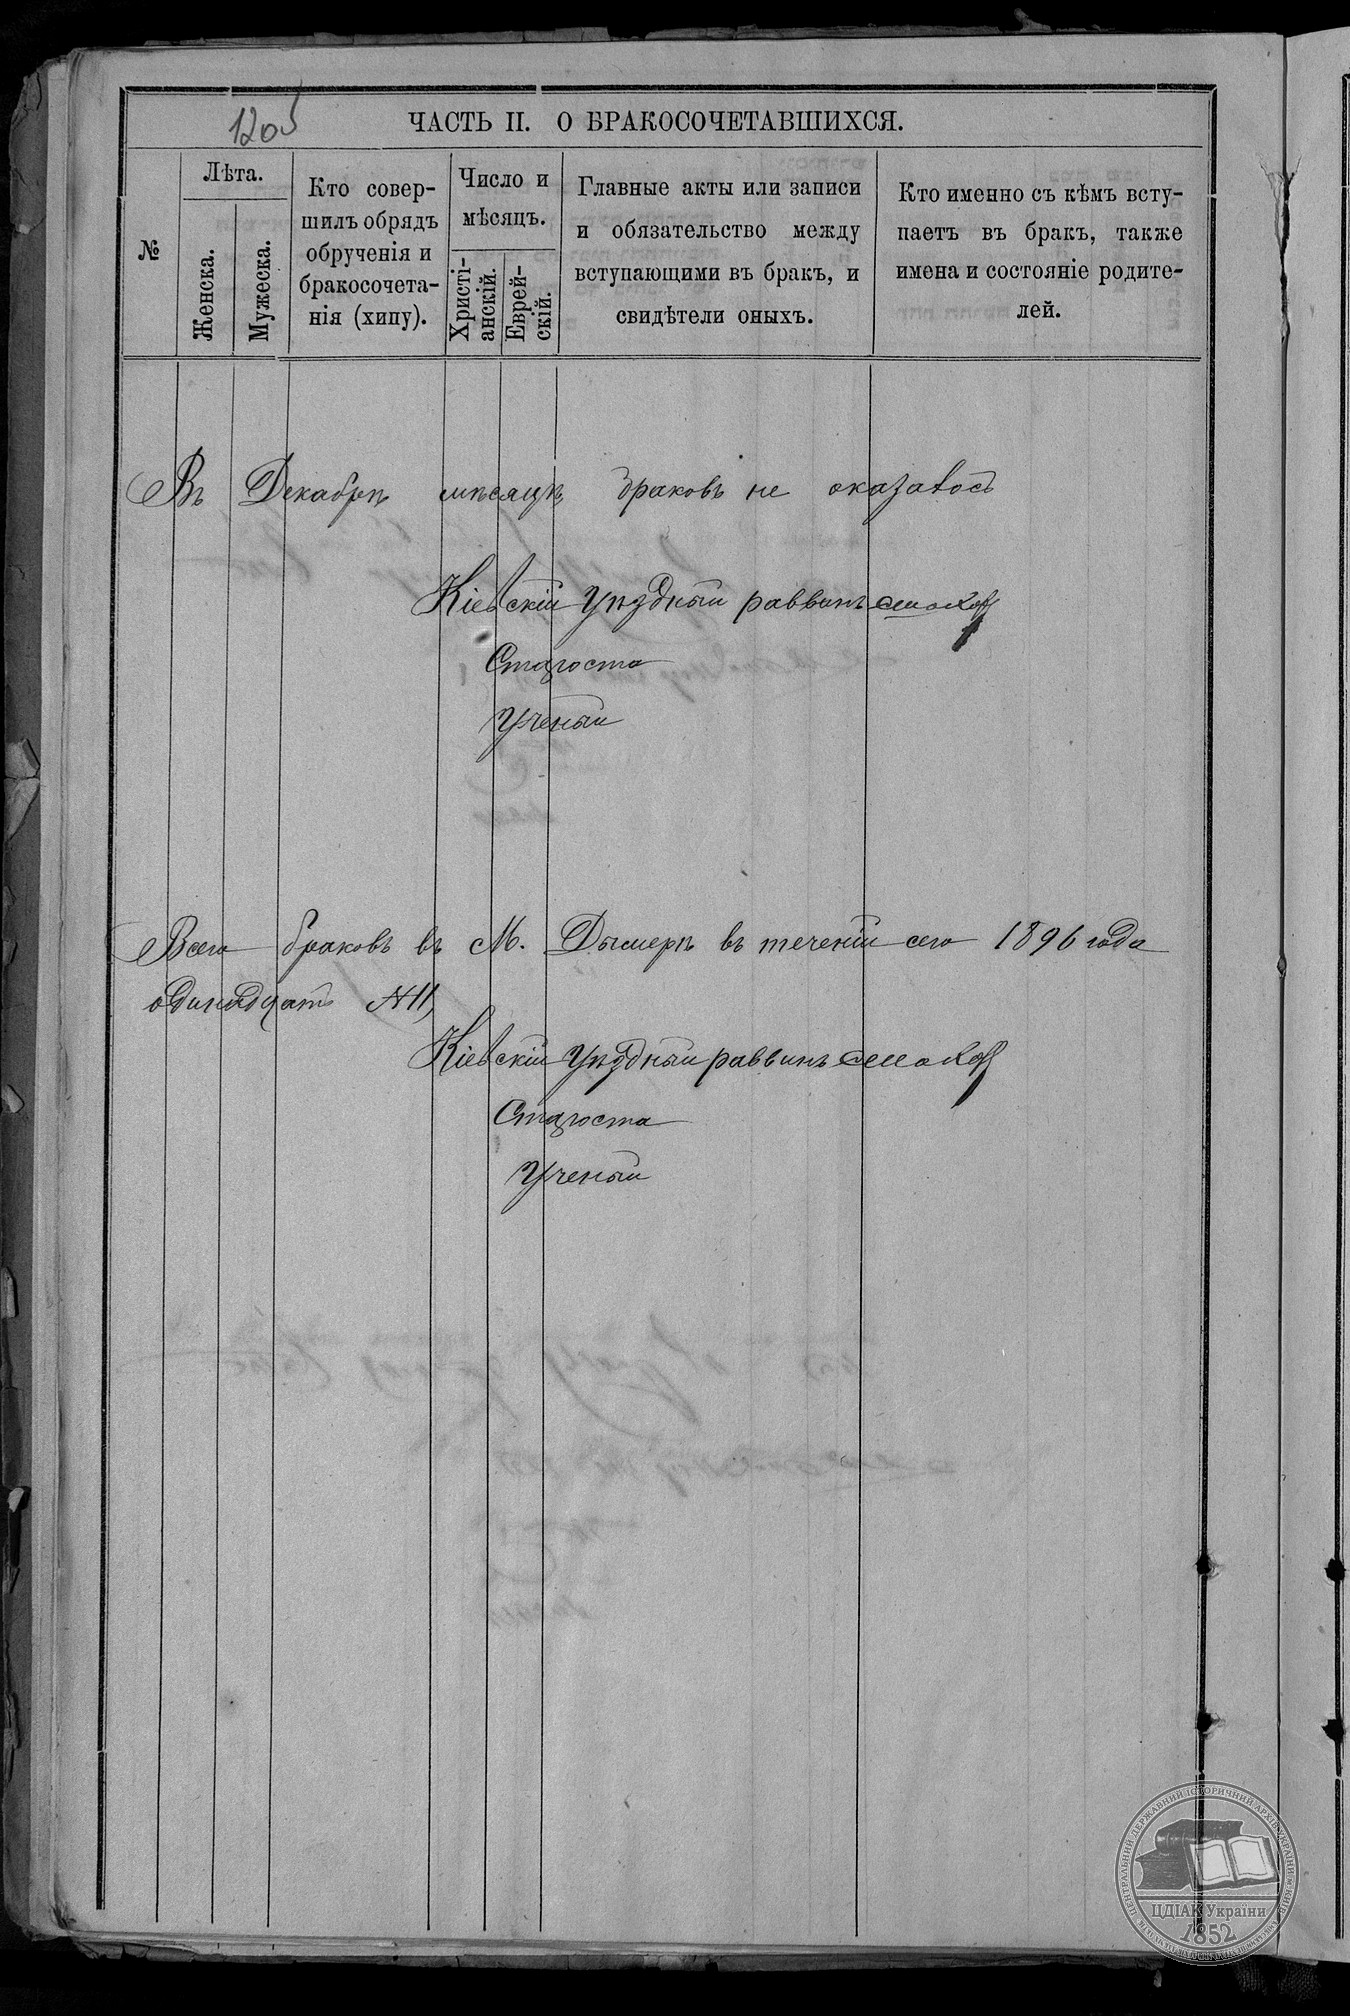 1205
ЧАСТЬ II. О БРАКОСОЧЕТАВШИХСЯ.
№
Лѣта.
Женска.
Мужеска.
Кто совер-
шилъ обрядъ
обрученія и
бракосочета-
нія (хипу).
Число и
мѣсяцъ.
Христі-
анскій.
Еврей-
скій.
Главные акты или записи
и обязательство между
вступающими въ бракъ, и
свидѣтели оныхъ.
Кто именно съ кѣмъ всту-
паетъ въ бракъ, также
имена и состояніе родите-
лей.
Въ Декабрѣ мѣсяцѣ браковъ не оказалось
Кіевскій Уѣздный раввинъ
Староста
Ученый
Всего браковъ въ М. Дымерѣ въ теченіи сего 1896 года
одинадцать №11,
Кіевскій Уѣздный раввинъ
Староста
Ученый
ЦЕНТРАЛЬНИЙ ДЕРЖАВНИЙ ІСТОРИЧНИЙ АРХІВ УКРАЇНИ
ЦДІАК України
1852